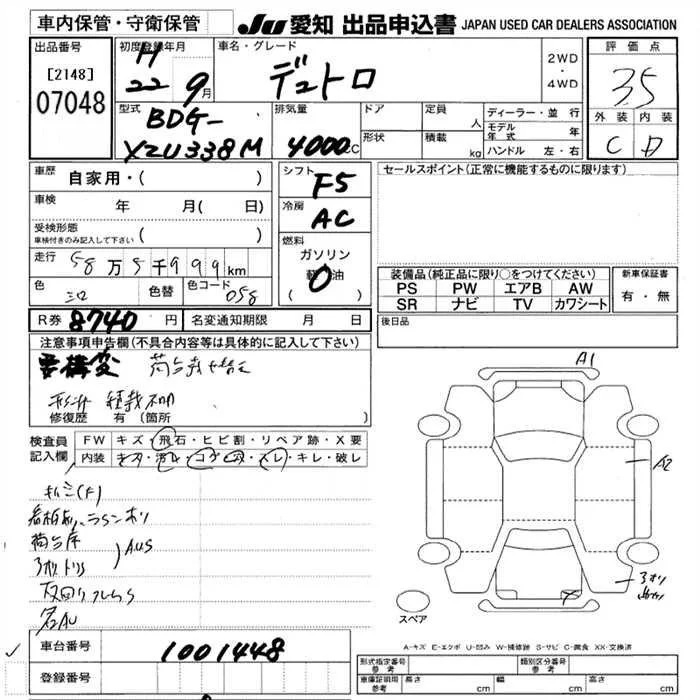 車内保管・守衛保管
JU 愛知 出品申込書 JAPAN USED CAR DEALERS ASSOCIATION
出品番号
[2148]
07048
初度登録年月
H
22 9月
車名・グレード
デュトロ
2WD
・
4WD
評価点
3.5
外装 内装
C D
型式
BDG-
XZU338M
排気量
4000CC
ドア
形状
定員 人
積載 kg
ディーラー・並行
モデル年式 年
ハンドル 左・右
車歴
自家用・( )
車検
年 月( 日)
受検形態
車検付きのみ記入して下さい ( )
走行
58万5千999km
色
シロ
色替
色コード
058
シフト
F5
冷房
AC
燃料
ガソリン
軽油
( )
セールスポイント(正常に機能するものに限ります)
装備品(純正品に限り○をつけてください)
PS PW エアB AW
SR ナビ TV カワシート
新車保証書
有・無
R券 8740円
名変通知期限 月 日
後日品
注意事項申告欄(不具合内容等は具体的に記入して下さい)
要構変
修復歴 有(箇所 )
検査員
記入欄
FW キズ・飛石・ヒビ割・リペア跡・X要
内装 キズ・汚レ・コゲ・穴・スレ・キレ・破レ
キシミ(F)
荷台床
AUS
3方トリイ
A1
A2
スペア
A-キズ E-エクボ U-凹み W-補修跡 S-サビ C-腐食 XX-交換済
車台番号
1001448
登録番号
形式指定番号
参考
類別区分番号
参考
車庫証明用
参考
長さ cm 幅 cm 高さ cm